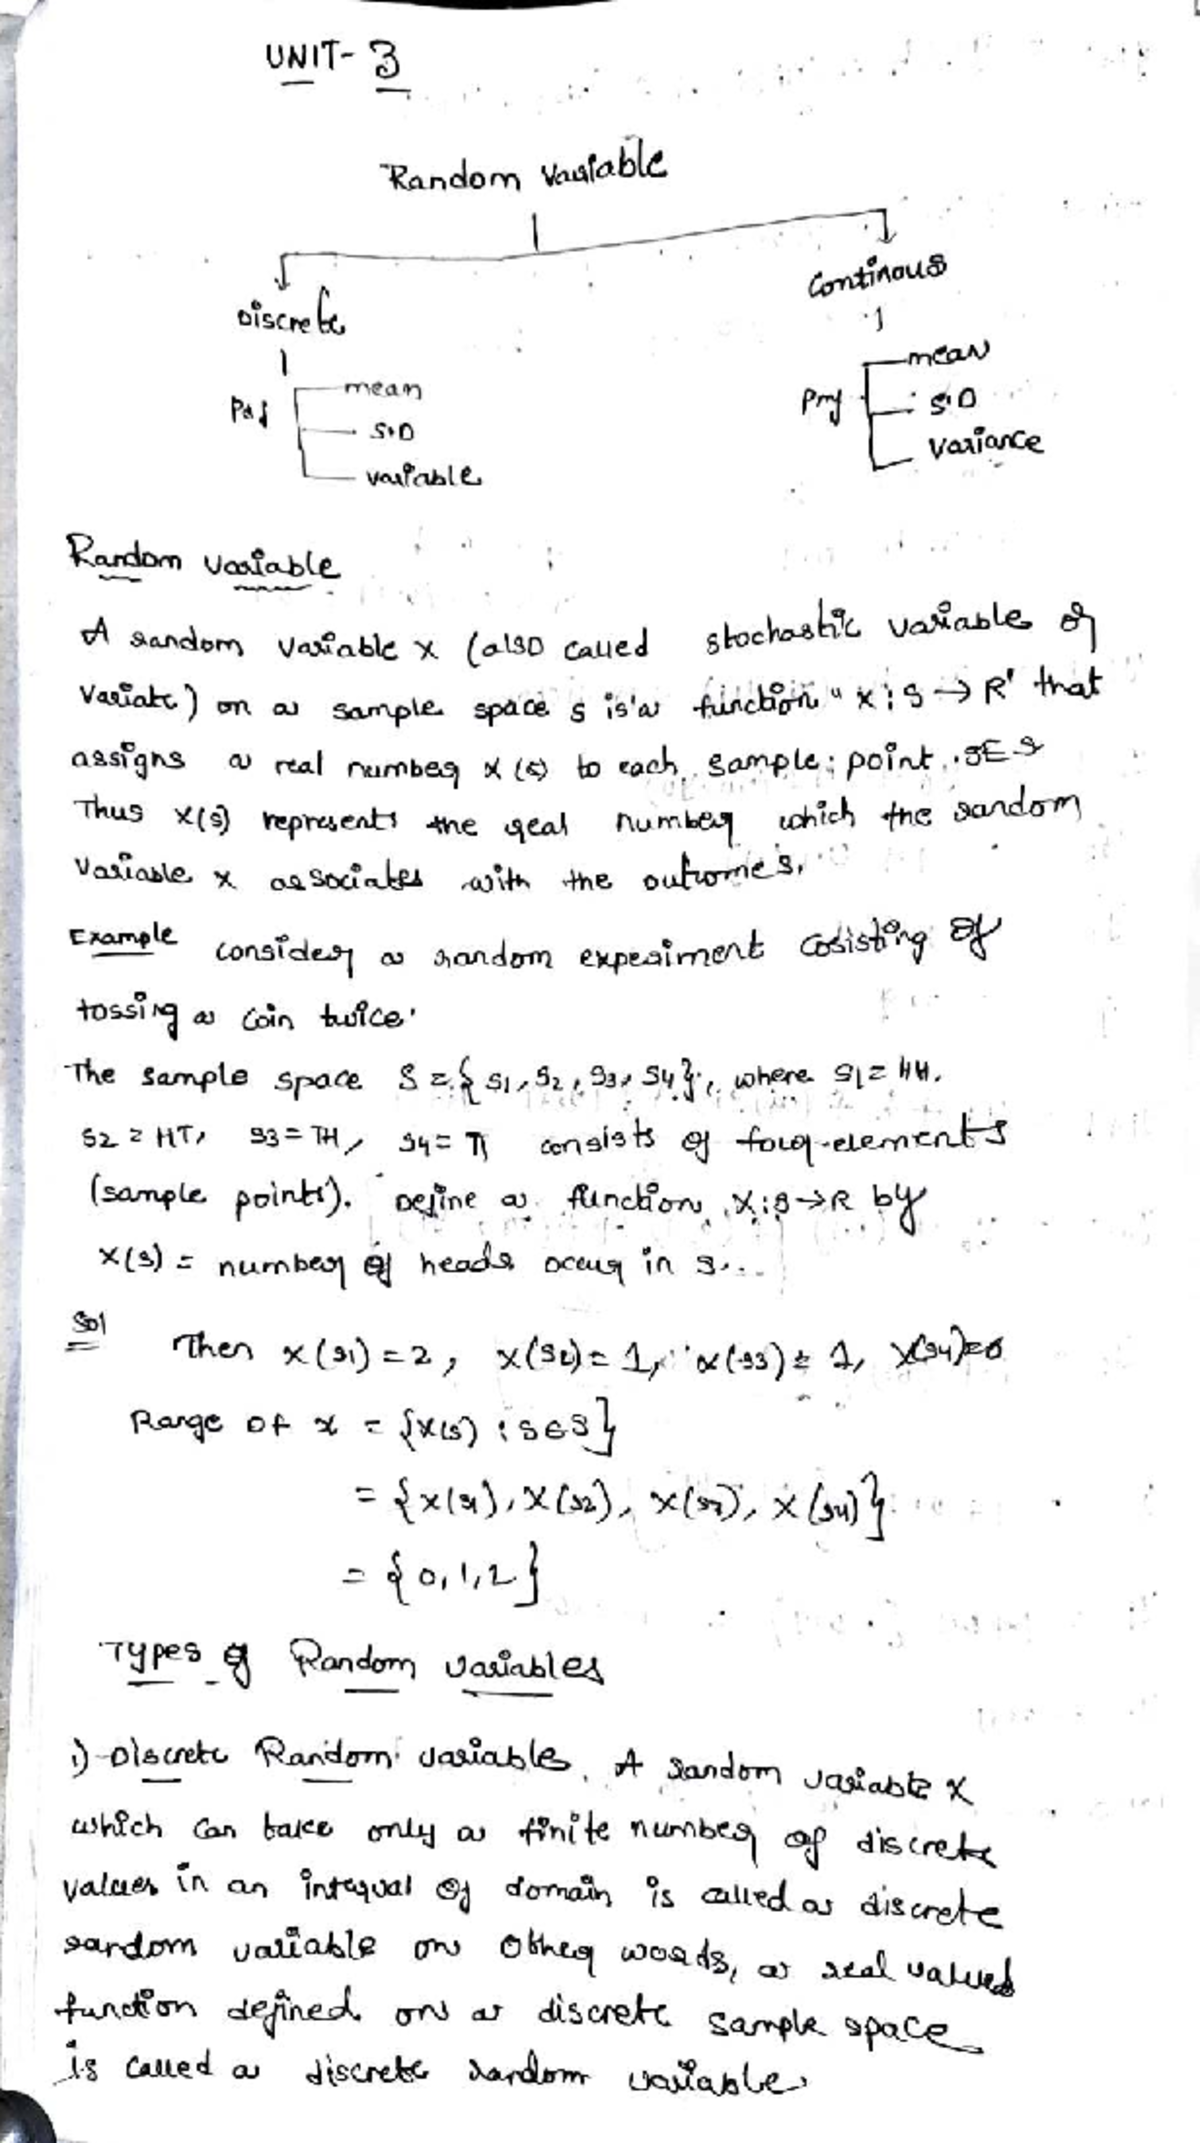 UNIT- 3
Random Variable
Discrete
Continous
Pdf
mean
S.D
variable
Pmf
mean
S.D
Variance
Random variable
A random variable x (also called stochastic variable or
variate) on a sample space s is a function " x : s → R' that
assigns a real number x (s) to each sample point s ∈ S
Thus x(s) represents the real number which the random
variable x associates with the outcome s.
Example consider a random experiment cosisting of
tossing a coin twice.
The sample space S = { s1, s2, s3, s4 }, where s1 = HH,
s2 = HT, s3 = TH, s4 = TT consists of four-elements
(sample points). Define a function X : s → R by
x(s) = number of heads occur in s...
Sol Then x(s1) = 2, x(s2) = 1, x(s3) = 1, x(s4)=0
Range of x = {x(s) : s ∈ S}
= {x(s1), x(s2), x(s3), x(s4)}
= {0,1,2}
Types of Random variables
1) Discrete Random variables. A random variable x
which can take only a finite number of discrete
values in an interval of domain is called as discrete
random variable on other words, a real valued
function defined on a discrete sample space
is called a discrete random variable.